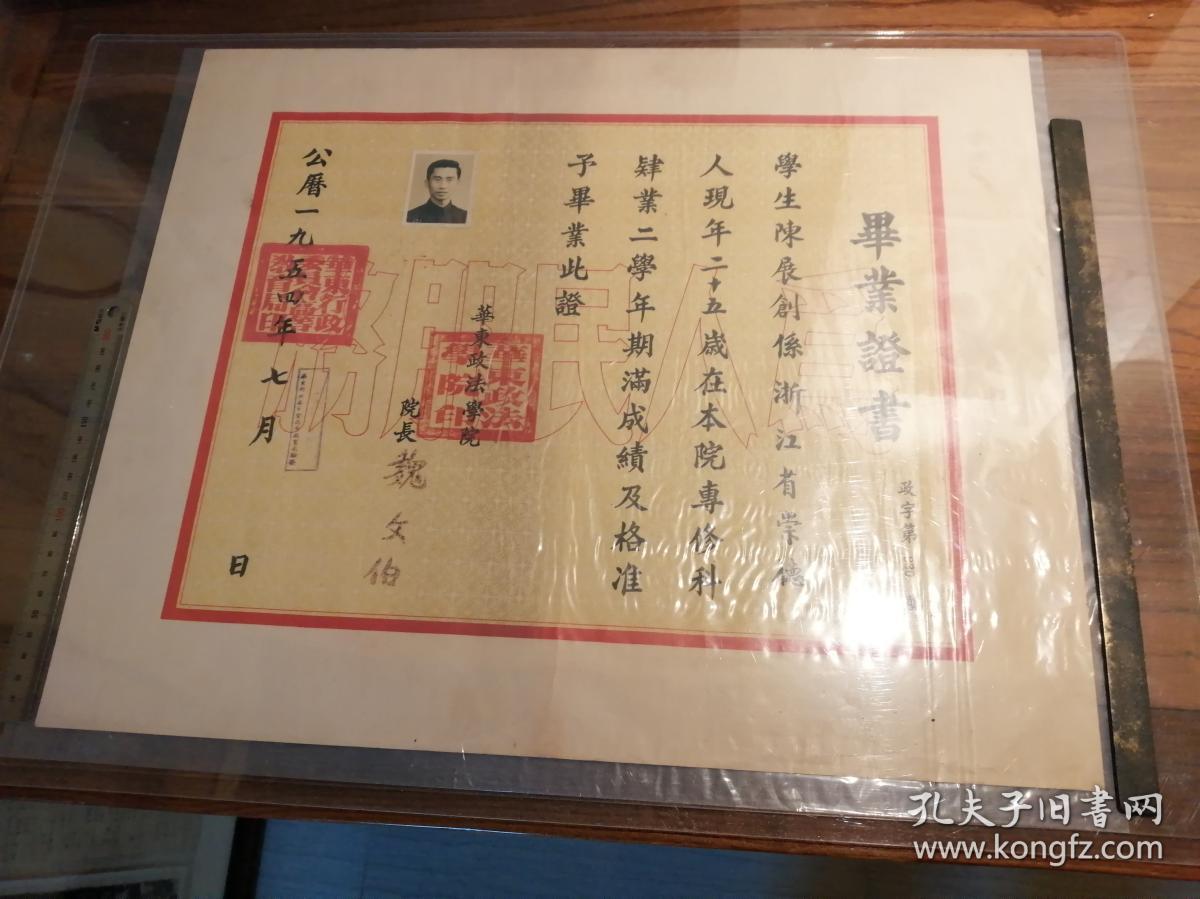 畢業證書
政字第
學生陳展創係浙江省崇德
人現年二十五歲在本院專修科
肄業二學年期滿成績及格准
予畢業此證
為人民服務
華東政法學院
華東政法學院印
院長 魏文伯
公曆一九五四年七月 日
孔夫子旧书网
www.kongfz.com